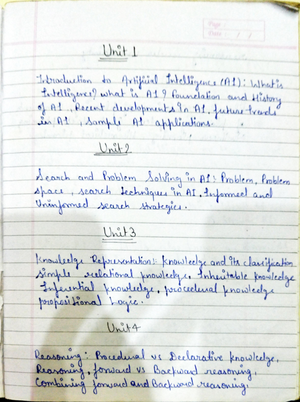 Page
Date
Unit 1
Introduction to Artificial Intelligence (AI): What is
Intelligence? what is AI? Foundation and History
of AI, Recent developments in AI, future trends
in AI, Sample AI applications.
Unit 2
Search and Problem Solving in AI: Problem, Problem
space, search techniques in AI, Informed and
Uninformed search strategies.
Unit 3
Knowledge Representation: Knowledge and its classification
simple relational knowledge, Inheritable knowledge
Inferential knowledge, procedural knowledge
propositional Logic.
Unit 4
Reasoning: Procedural vs Declarative knowledge,
Reasoning, forward vs Backward reasoning,
Combining forward and Backward reasoning.